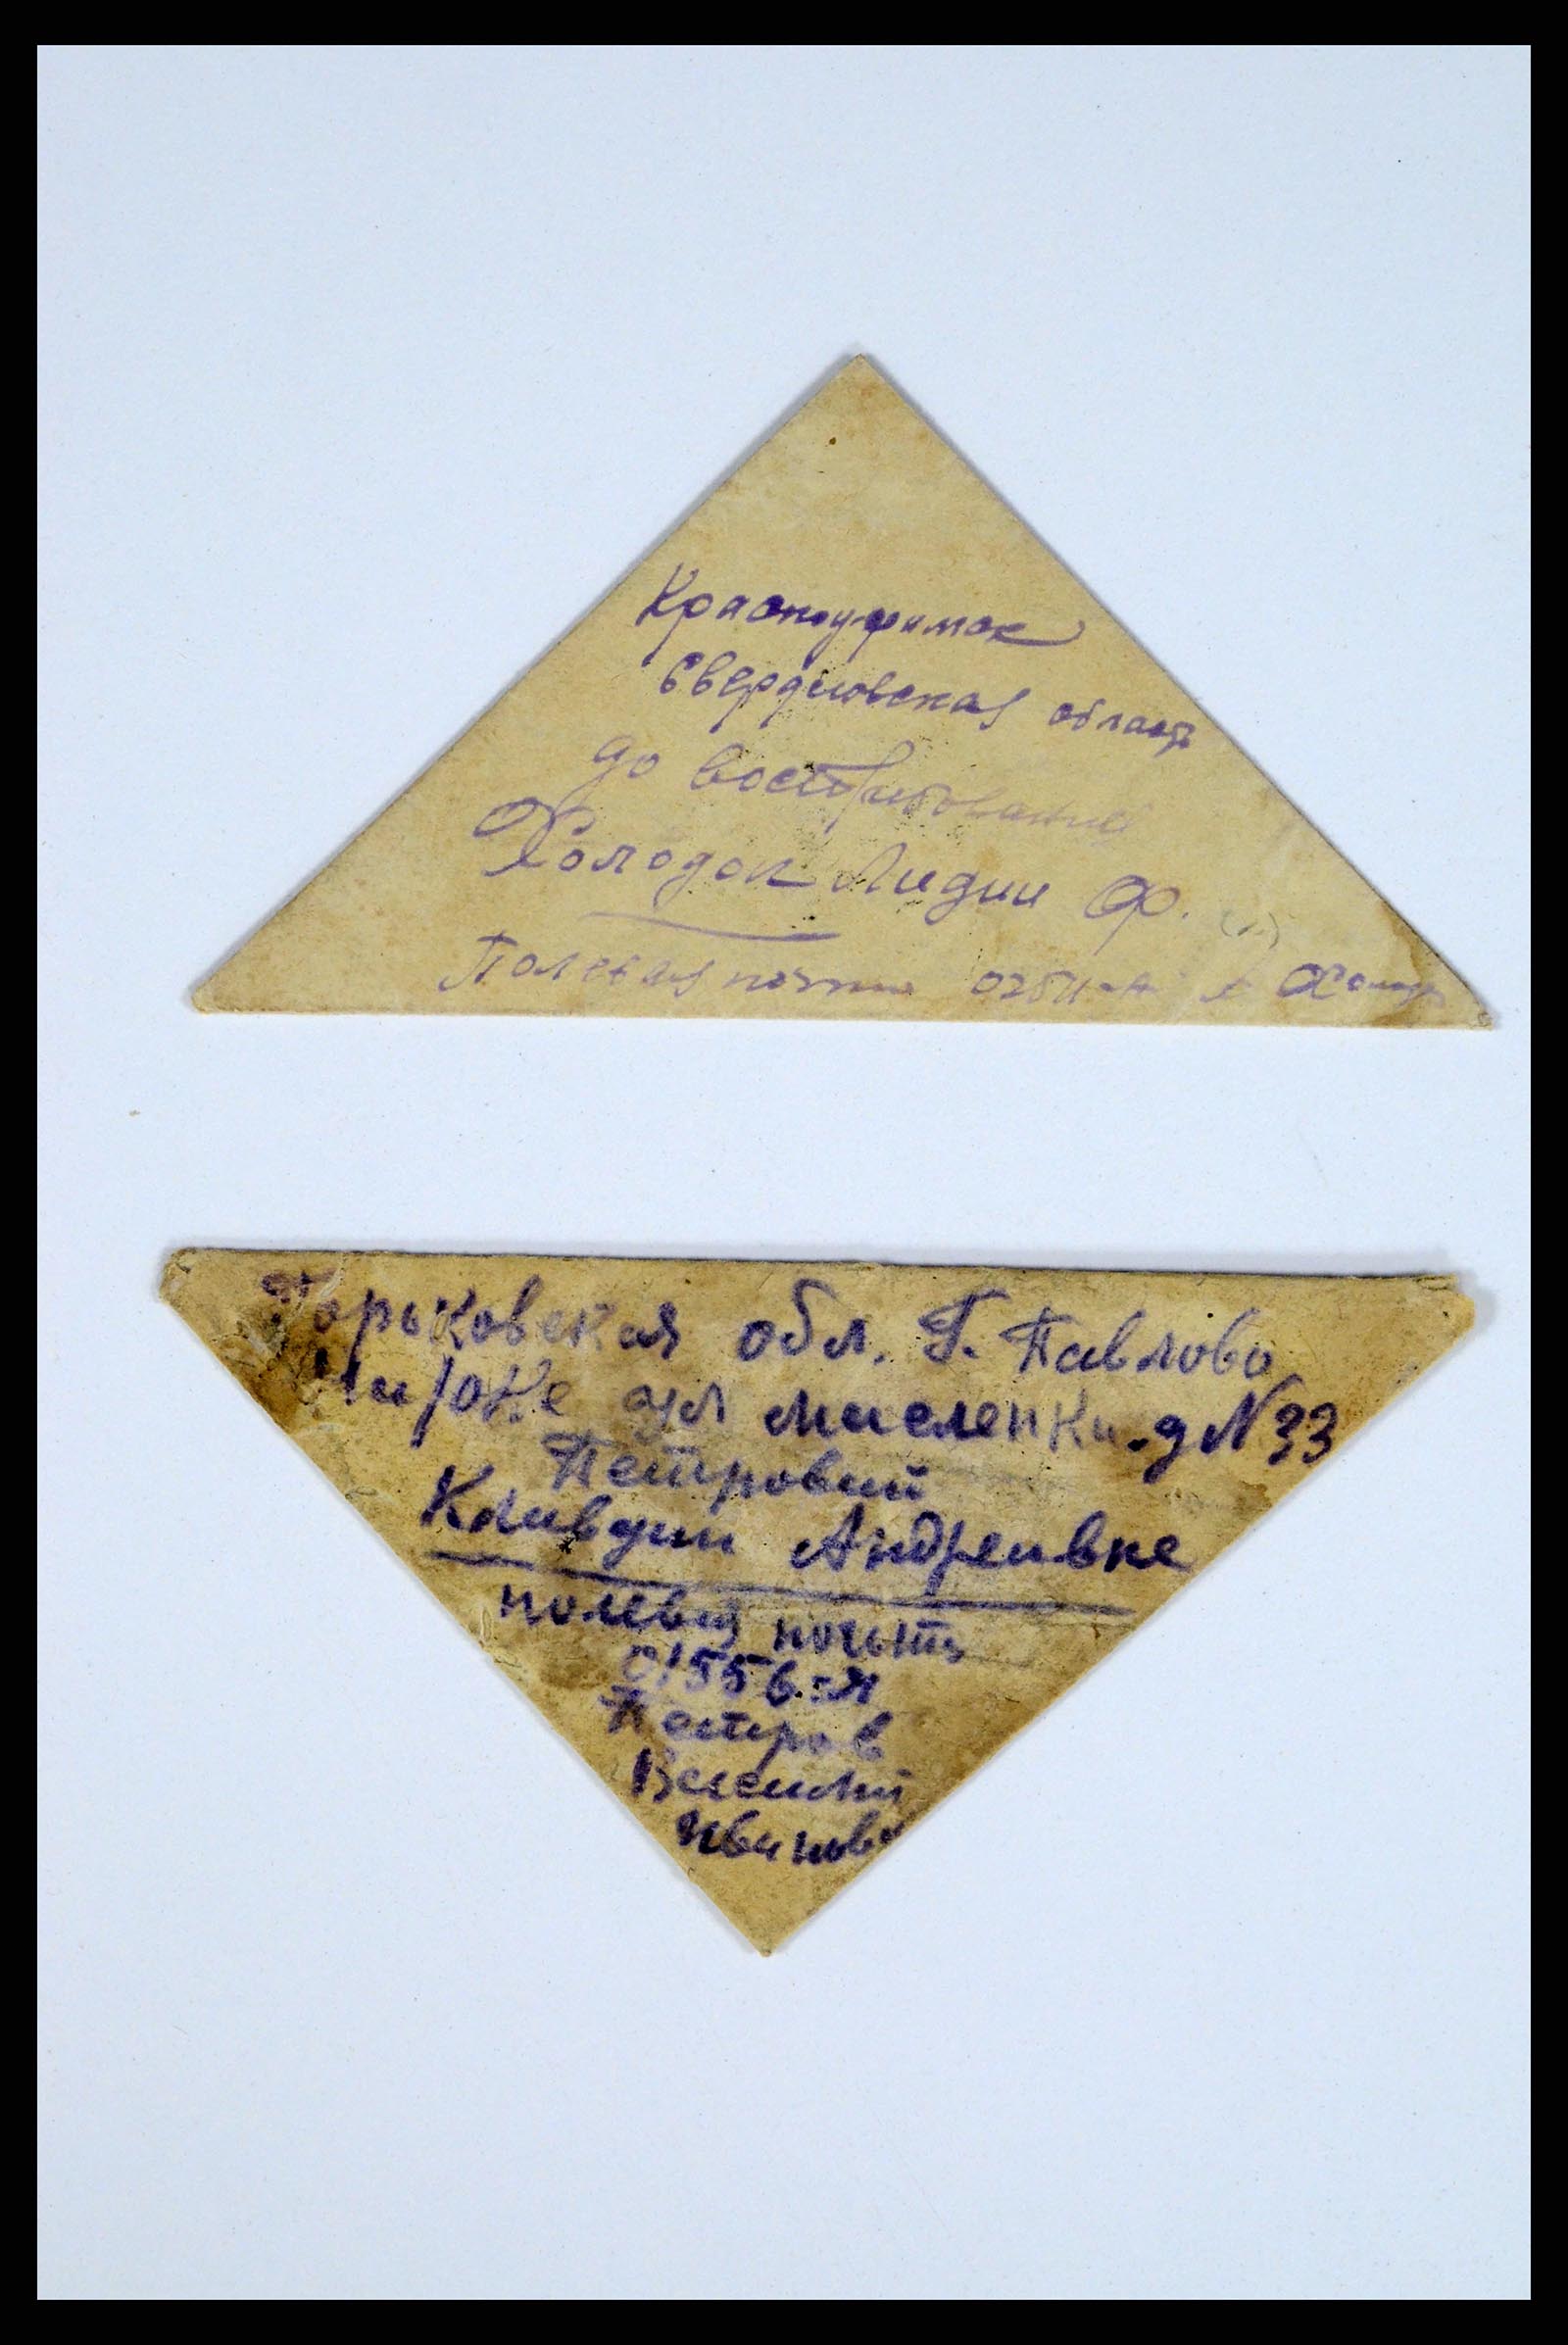 Красноуфимск
Свердловская область
до востребования
Холодок Лидии Ф.
Полевая почта
Горьковская обл. Г. Павлово
ул д N 33
Петровий
Клавдии Андреивне
полевая почьта
01556-Я
Петров
Василий